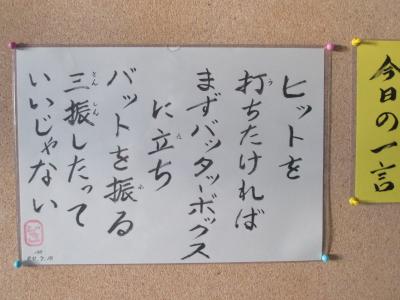 今日の一言
ヒットを
打ちたければ
まずバッターボックス
に立ち
バットを振る
三振したって
いいじゃない